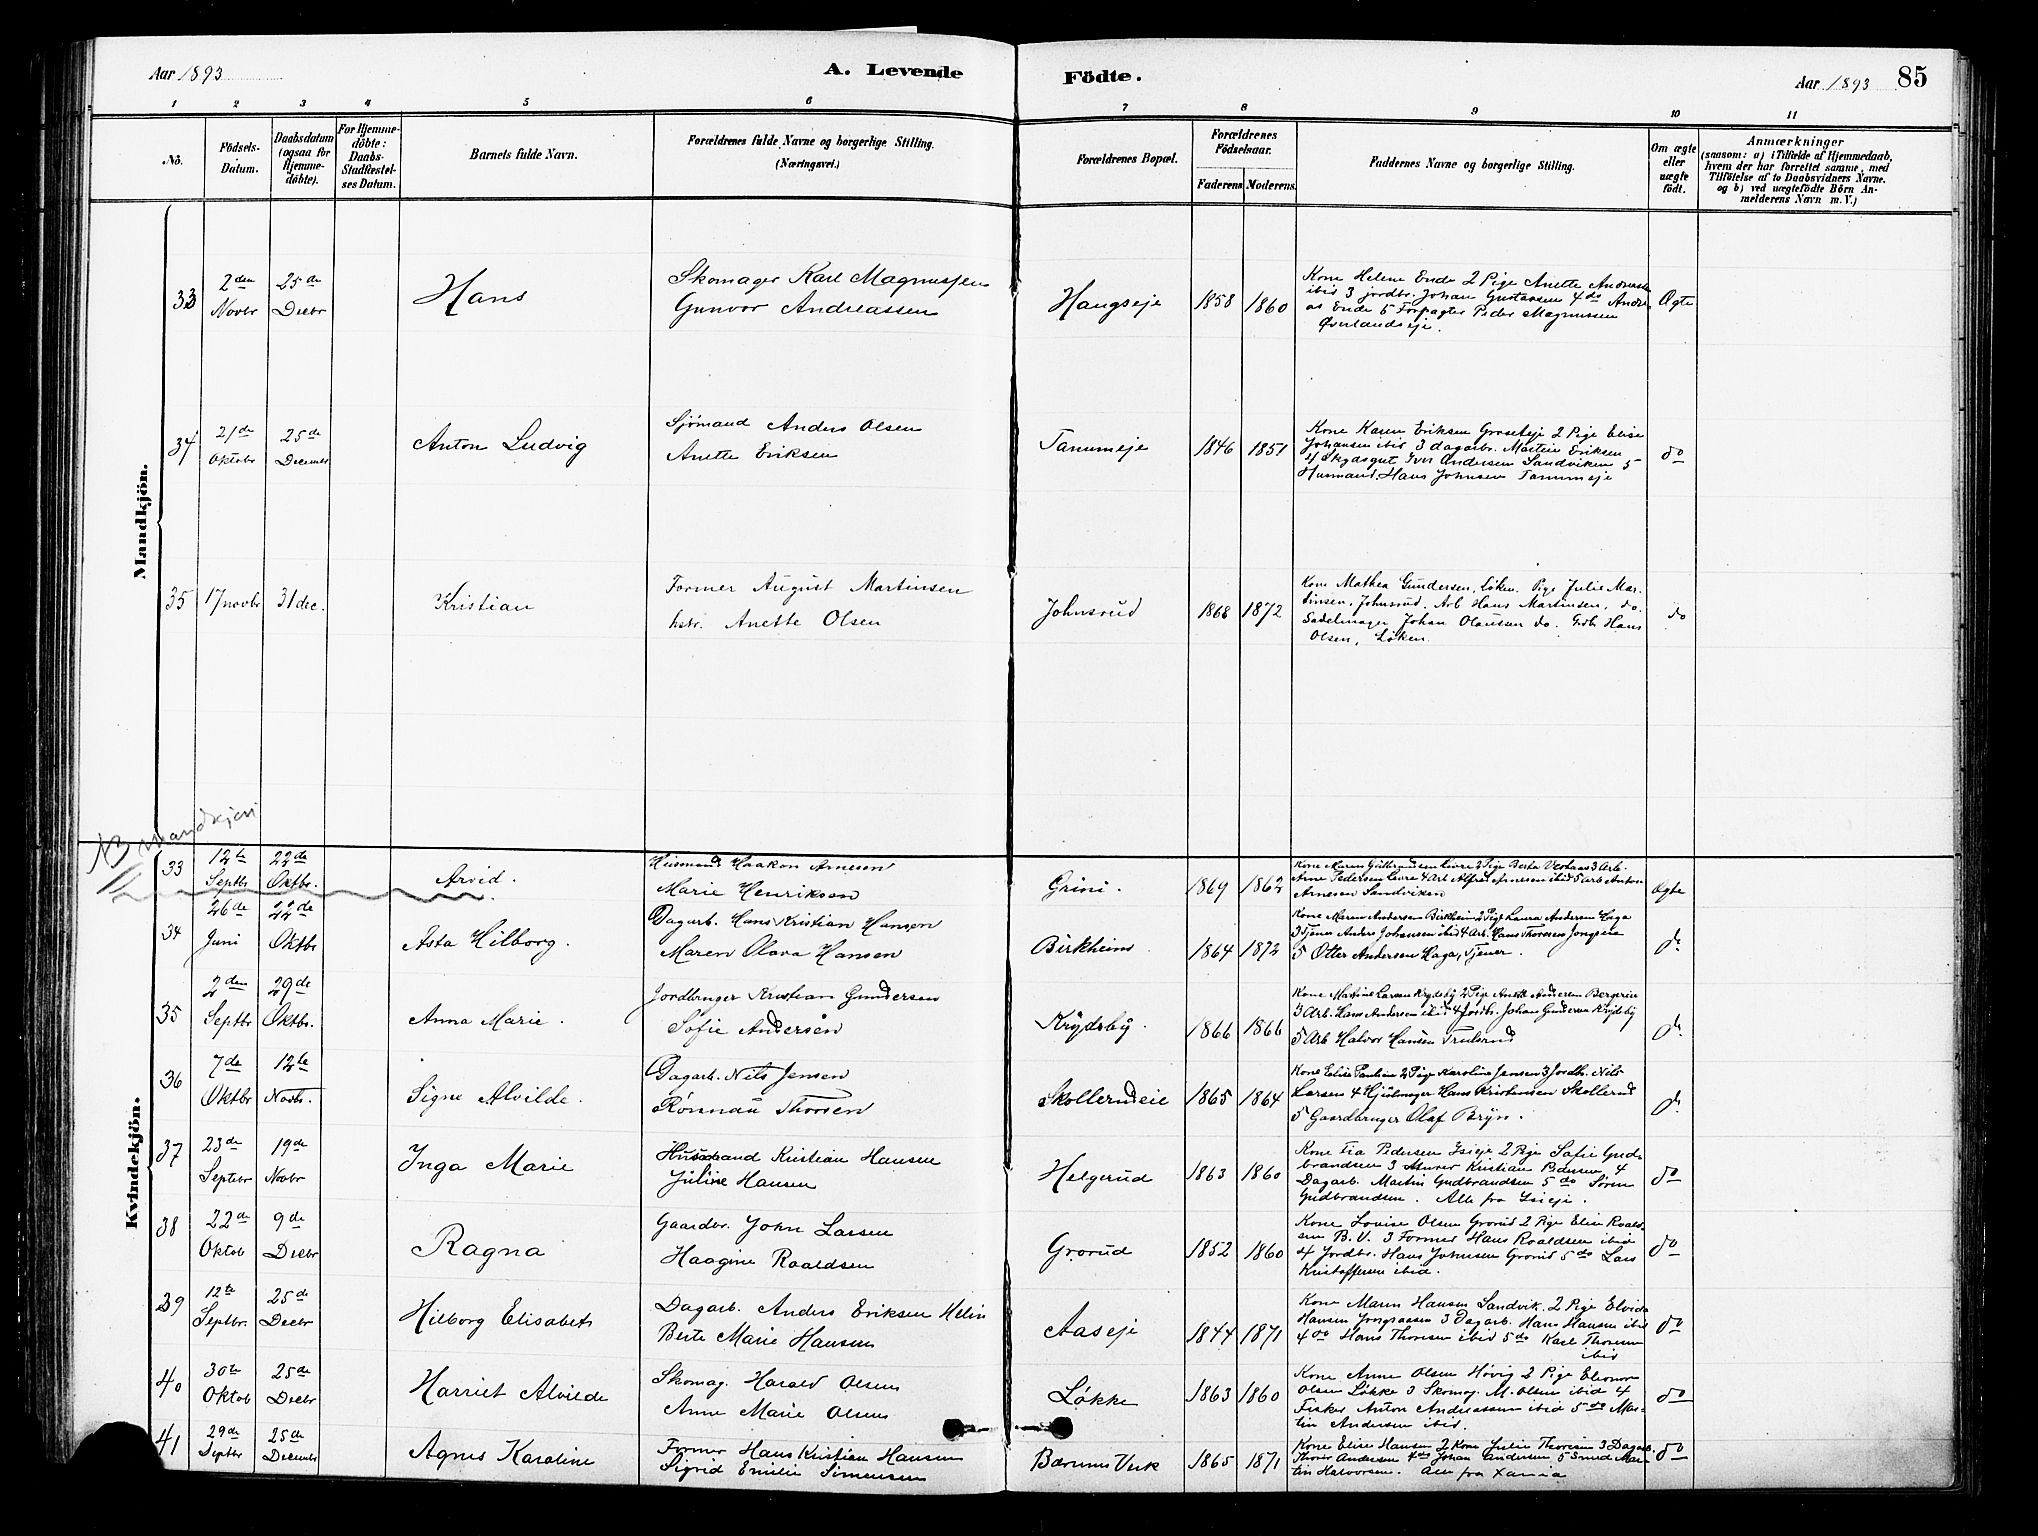 Aar 1893
A. Levende Födte.
Aar 1893 85
1 2 3 4 5 6 7 8 9 10 11
Nö.
Födsels-Datum.
Daabsdatum (ogsaa for Hjemme-döbte).
For Hjemme-döbte: Daabs-Stadfæstel-ses Datum.
Barnets fulde Navn.
Forældrenes fulde Navne og borgerlige Stilling. (Næringsvei.)
Forældrenes Bopæl.
Forældrenes Födselsaar.
Faderens. Moderens.
Faddernes Navne og borgerlige Stilling.
Om ægte eller uægte födt.
Anmærkninger
(saasom: a) i Tilfælde af Hjemmedaab, hvem der har forrettet samme, med Tilföielse af to Daabsvidners Navne. og b) ved uægtefödte Börn An-melderens Navn m. V.)
Mandkjön.
33 2den Novbr 25de Decbr Hans
Skomager Karl Magnussen
Gunvor Andreassen
Haugseje 1858 1860
Kone Helene Ende 2 Pige Anette Andreasen
ibid 3 jordbr. Johan Gustavsen 4 do Andre-
as Ende 5 Forpagter Peder Magnussen
Øverlandseje.
Ægte
34 21de Oktobr 25de Decembr Anton Ludvig
Sjömand Anders Olsen
Anette Eriksen
Tanumeje 1846 1851
Kone Karen Eriksen Groseteje 2 Pige Elise
Johansen ibid 3 dagarb. Martin Eriksen
4 Skydsgut Iver Andersen Sandviken 5
Husmand. Hans Johnsen Tanumeje
do
35 17 novbr 31 dec. Kristian
Former August Martinsen
hstr. Anette Olsen
Johnsrud 1868 1872
Kone Mathea Gundersen, Løken. Pige Julie Mar-
tinsen, Johnsrud. Arb Hans Martinsen, do.
Sadelmager Johan Olausen do. Grdb Hans
Olsen, Løken.
do
NB Mandkjøn
Kvindekjön.
33 12te Septbr 22de Oktbr. Arvid.
Husmand Haakon Arnesen
Marie Henriksen
Grini. 1869 1862
Kone Maren Gulbrandsen Levre 2 Pige Berta 3 Arb.
Arne Pedersen Levre 4 Arb Alfred Arnesen ibid 5 Arb Anton
Arnesen Sandviken
Ægte
34 26de Juni 22de Oktbr Asta Hilborg.
Dagarb. Hans Kristian Hansen
Maren Olava Hansen
Birkheim 1864 1872
Kone Maren Andersen Birkheim 2 Pige Laura Andersen Haga
3 Tjener Anders Johansen ibid 4 Arb. Hans Thoresen
5 Otter Andersen Haga, Tjener.
do
35 2den Septbr 29de Oktbr. Anna Marie.
Jordbruger Kristian Gundersen
Sofie Andersen
Krydsby. 1866 1866
Kone Martine Larsen Krydsby 2 Pige Anette Andersen Bergerie
3 Arb. Hans Andersen ibid 4 Jordbr. Johan Gundersen Krydsby
5 Arb Halvor Hansen Trulerud
do
36 7de Oktbr 12te Novbr. Signe Alvilde.
Dagarb. Nils Jensen
Rønnau Thorsen
Skollerudeie 1865 1864
Kone Elise Paulsen 2 Pige Karoline Jensen 3 Jordb. Nils
Larsen 4 Hjulmager Hans Kristensen Skollerud
5 Gaardbruger Olaf Bryn.
do
37 23de Septbr 19de Novbr Inga Marie
Husmand Kristian Hansen
Juline Hansen
Helgerud 1863 1860
Kone Tia Pedersen Isieje 2 Pige Sofie Gud-
brandsen 3 Murer Kristian Pedersen, 4
Dagarb. Martin Gudbrandsen 5 do Søren
Gudbrandsen. Alle fra Isieje.
do
38 22de Oktob 9de Decbr Ragna
Gaardbr. John Larsen
Haagine Roaldsen
Grorud 1852 1860
Kone Lovise Olsen Grorud 2 Pige Elise Roald-
sen B.V. 3 Former Hans Roaldsen ibid
4 Jordbr. Hans Johnsen Grorud 5 do Lars
Kristoffersen ibid.
do
39 12te Septbr. 25de Decbr Hilborg Elisabeth
Dagarb. Anders Eriksen
Berte Marie Hansen
Aaseje 1844 1871
Kone Maren Hansen Sandvik. 2 Pige Elvida
Hansen 3 Dagarb. Hans Hansen ibid
4 do Hans Thoresen ibid 5 do Karl Thoresen
ibid
do
40 30te Oktob 25de Decbr Harriet Alvilde
Skomag. Harald Olsen
Anne Marie Olsen
Løkke 1863 1860
Kone Anne Olsen Høvig 2 Pige Eleonor
Olsen Løkke 3 Skomag. M. Olsen ibid 4
Fisker Anton Andreassen ibid 5 do Mar-
tin Andersen ibid.
do
41 29de Septbr 25de Decembr Agnes Karoline
Former Hans Kristian Hansen
Sigrid Emilie Simensen
Bærums Verk 1865 1871
Kone Elise Hansen 2 Kone Julie Thoresen 3 Dagarb.
Andersen 4 do Johan Andersen 5 Smed Mar-
tin Halvorsen. Alle fra Xania
do